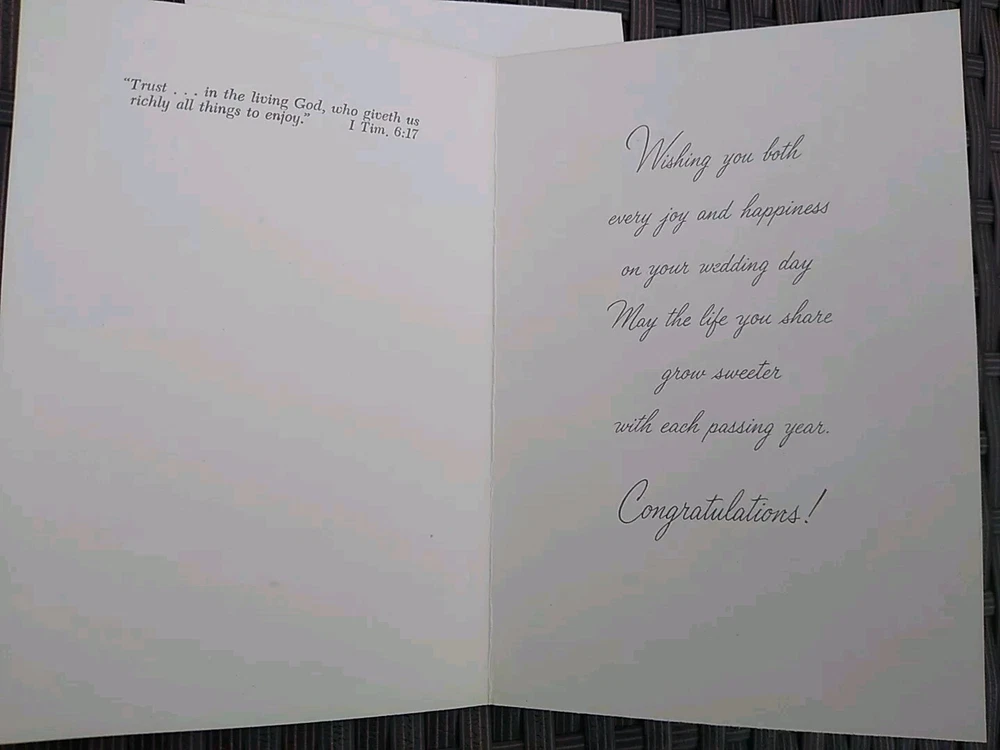 “Trust . . . in the living God, who giveth us
richly all things to enjoy.” I Tim. 6:17
Wishing you both
every joy and happiness
on your wedding day
May the life you share
grow sweeter
with each passing year.
Congratulations!